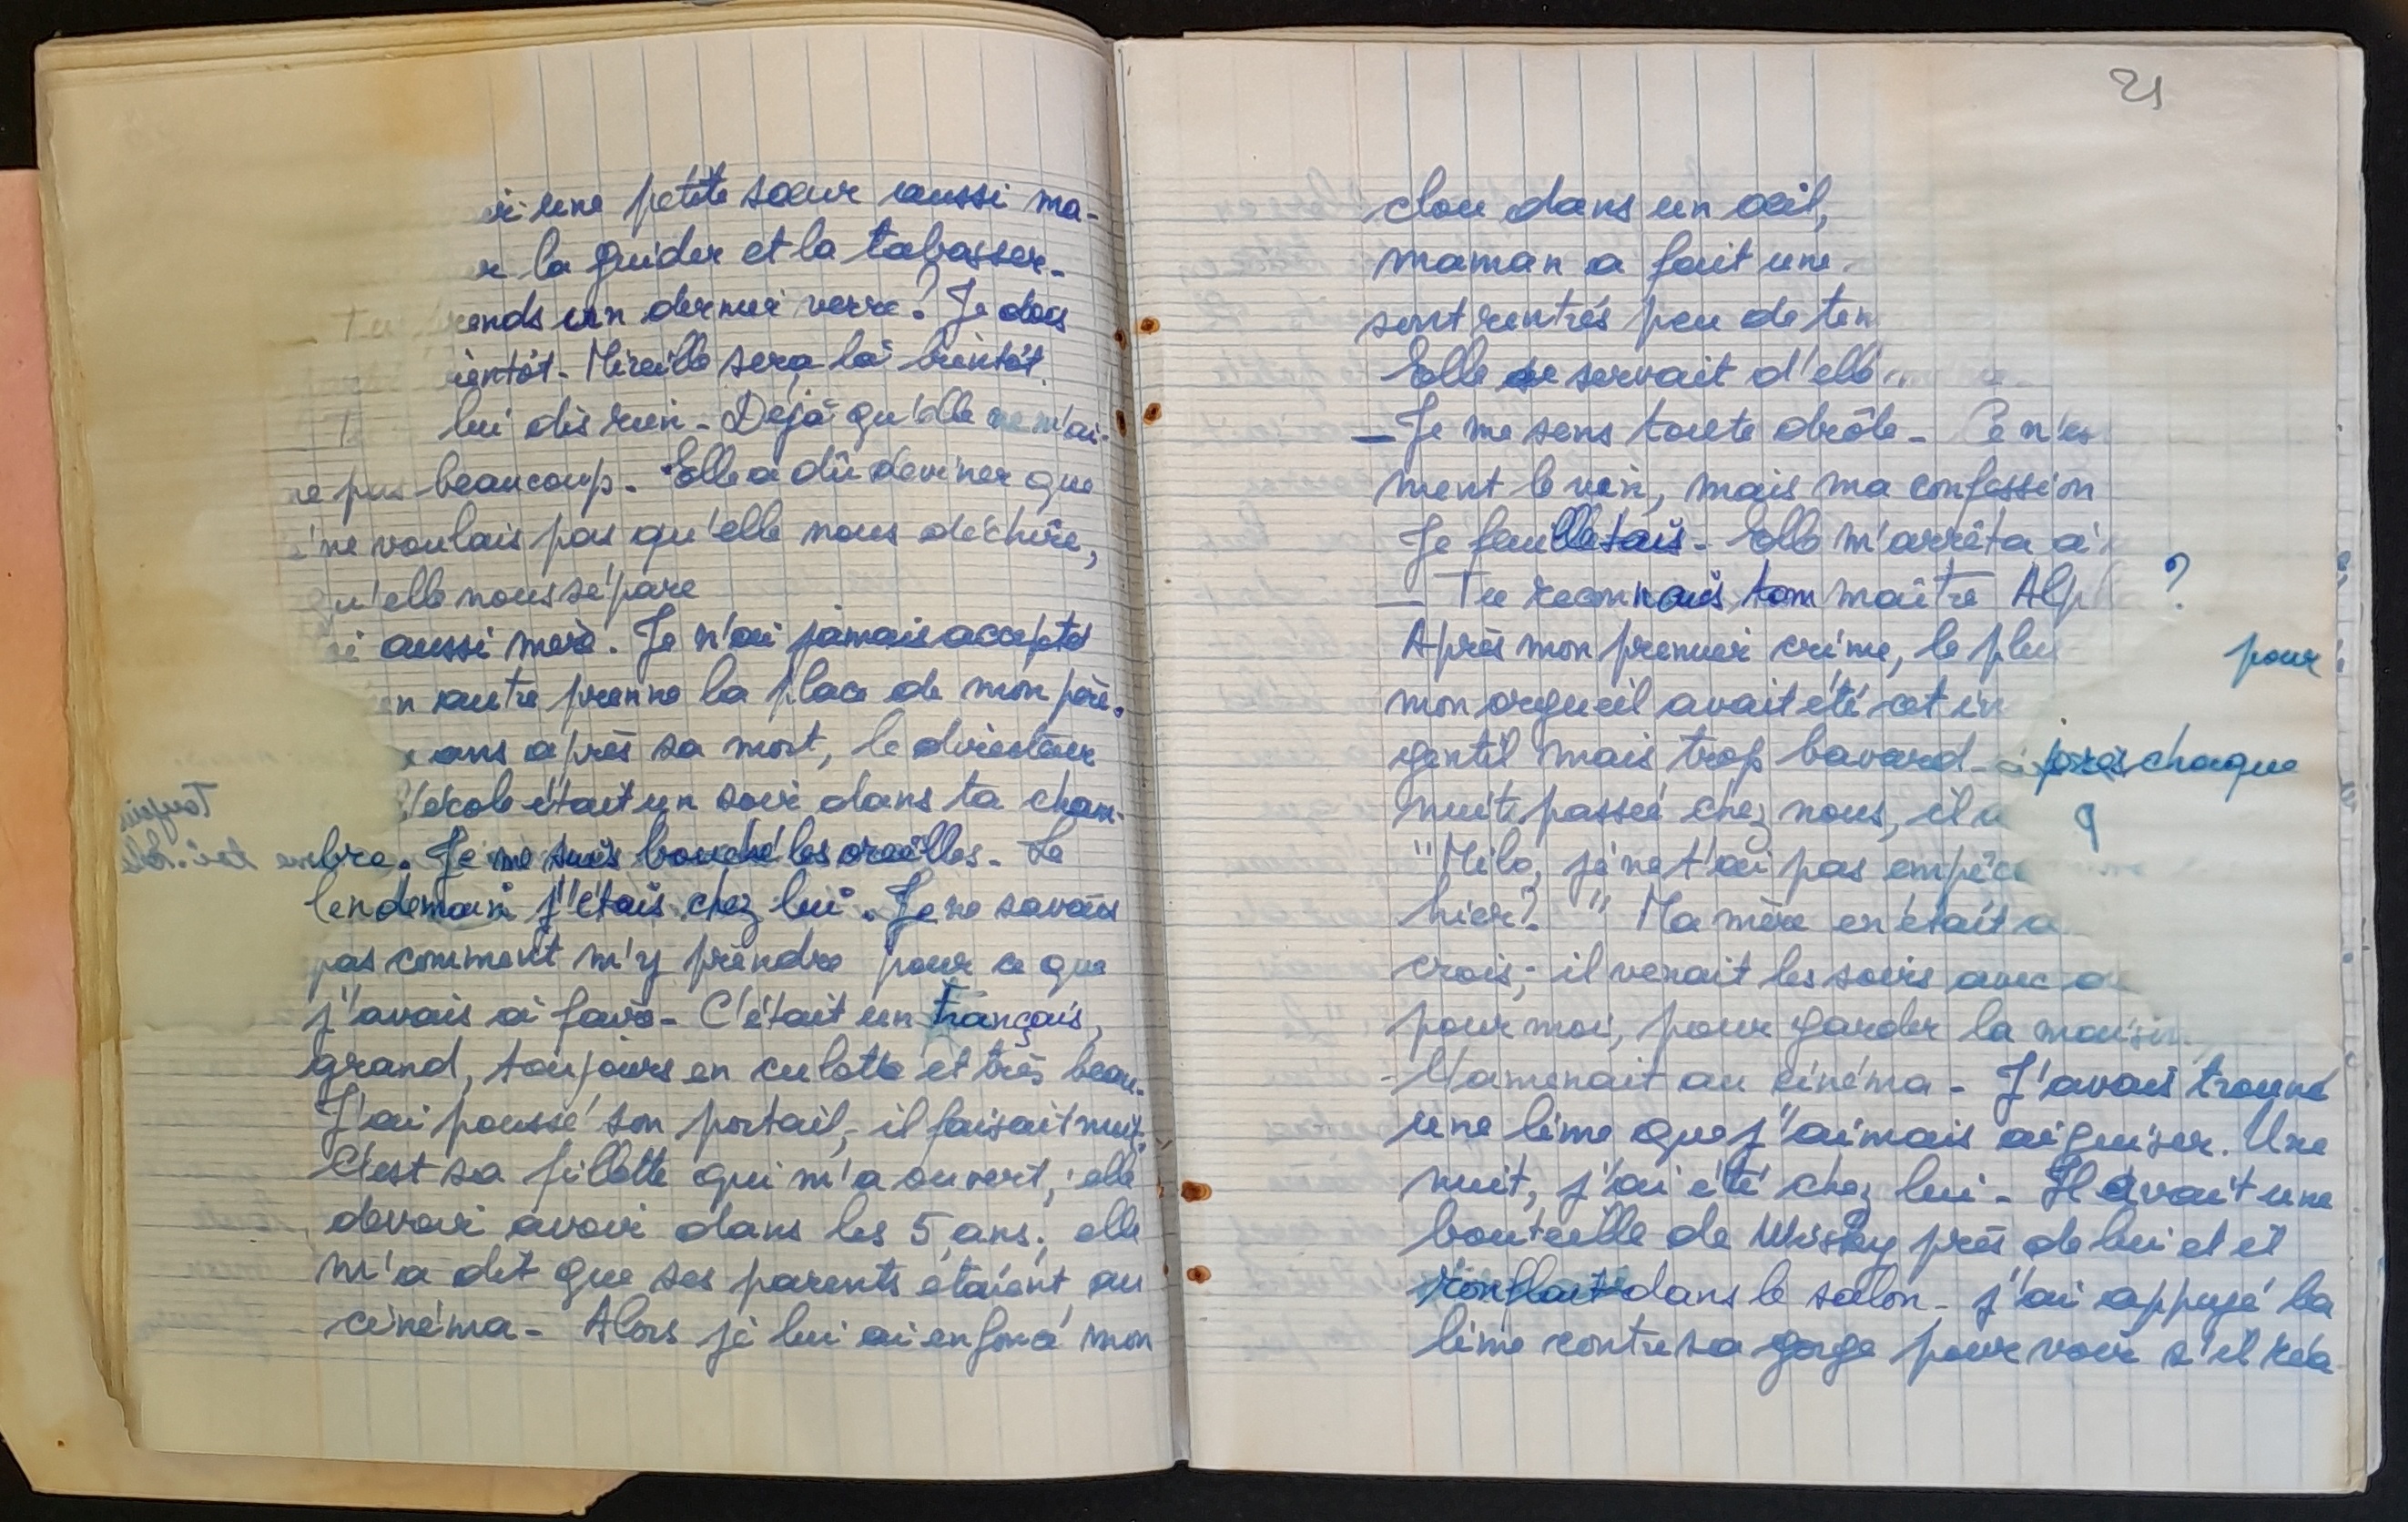 une petite sœur aussi ma-
la guider et la tabasser.
un dernier verre? Je dois
Mireille sera là bientôt.
lui dis rien - Déjà qu'elle ne m'ai-
pas beaucoup. Elle a dû deviner que
ne voulais pas qu'elle nous déchire,
qu'elle nous sépare
aussi mère. Je n'ai jamais accepté
autre prenne la place de mon père.
ans après sa mort, le directeur
l'école était un soir dans ta cham-
bre. Je me suis bouché les oreilles. Le
lendemain j'étais chez lui. Je ne savais
pas comment m'y prendre pour ce que
j'avais à faire - C'était un français,
grand, toujours en culotte et très beau.
J'ai poussé son portail, il faisait nuit.
C'est sa fillette qui m'a ouvert, elle
devait avoir dans les 5 ans; elle
m'a dit que ses parents étaient au
cinéma - Alors je lui ai enfoncé mon
21
clou dans un œil,
maman a fait une
sont rentrés peu de tem
Elle se servait d'elle
- Je me sens toute drôle - Ce n'es
ment le vin, mais ma confession
Je feuilletais - Elle m'arrêta à
- Tu reconnais ton maître Alp ?
Après mon premier crime, le plu pour
mon orgueil avait été cet in
gentil mais trop bavard - après chaque
nuit passée chez nous, il
"Milo, je ne t'ai pas empêc
hier? " Ma mère en était a
crois; il venait les soirs avec
pour moi, pour garder la maison
M'amenait au cinéma - J'avais trouvé
une lime que j'aimais aiguiser. Une
nuit, j'ai été chez lui - Il avait une
bouteille de Wisky près de lui et il
ronflait dans le salon - j'ai appuyé la
lime contre sa gorge pour voir s'il réa